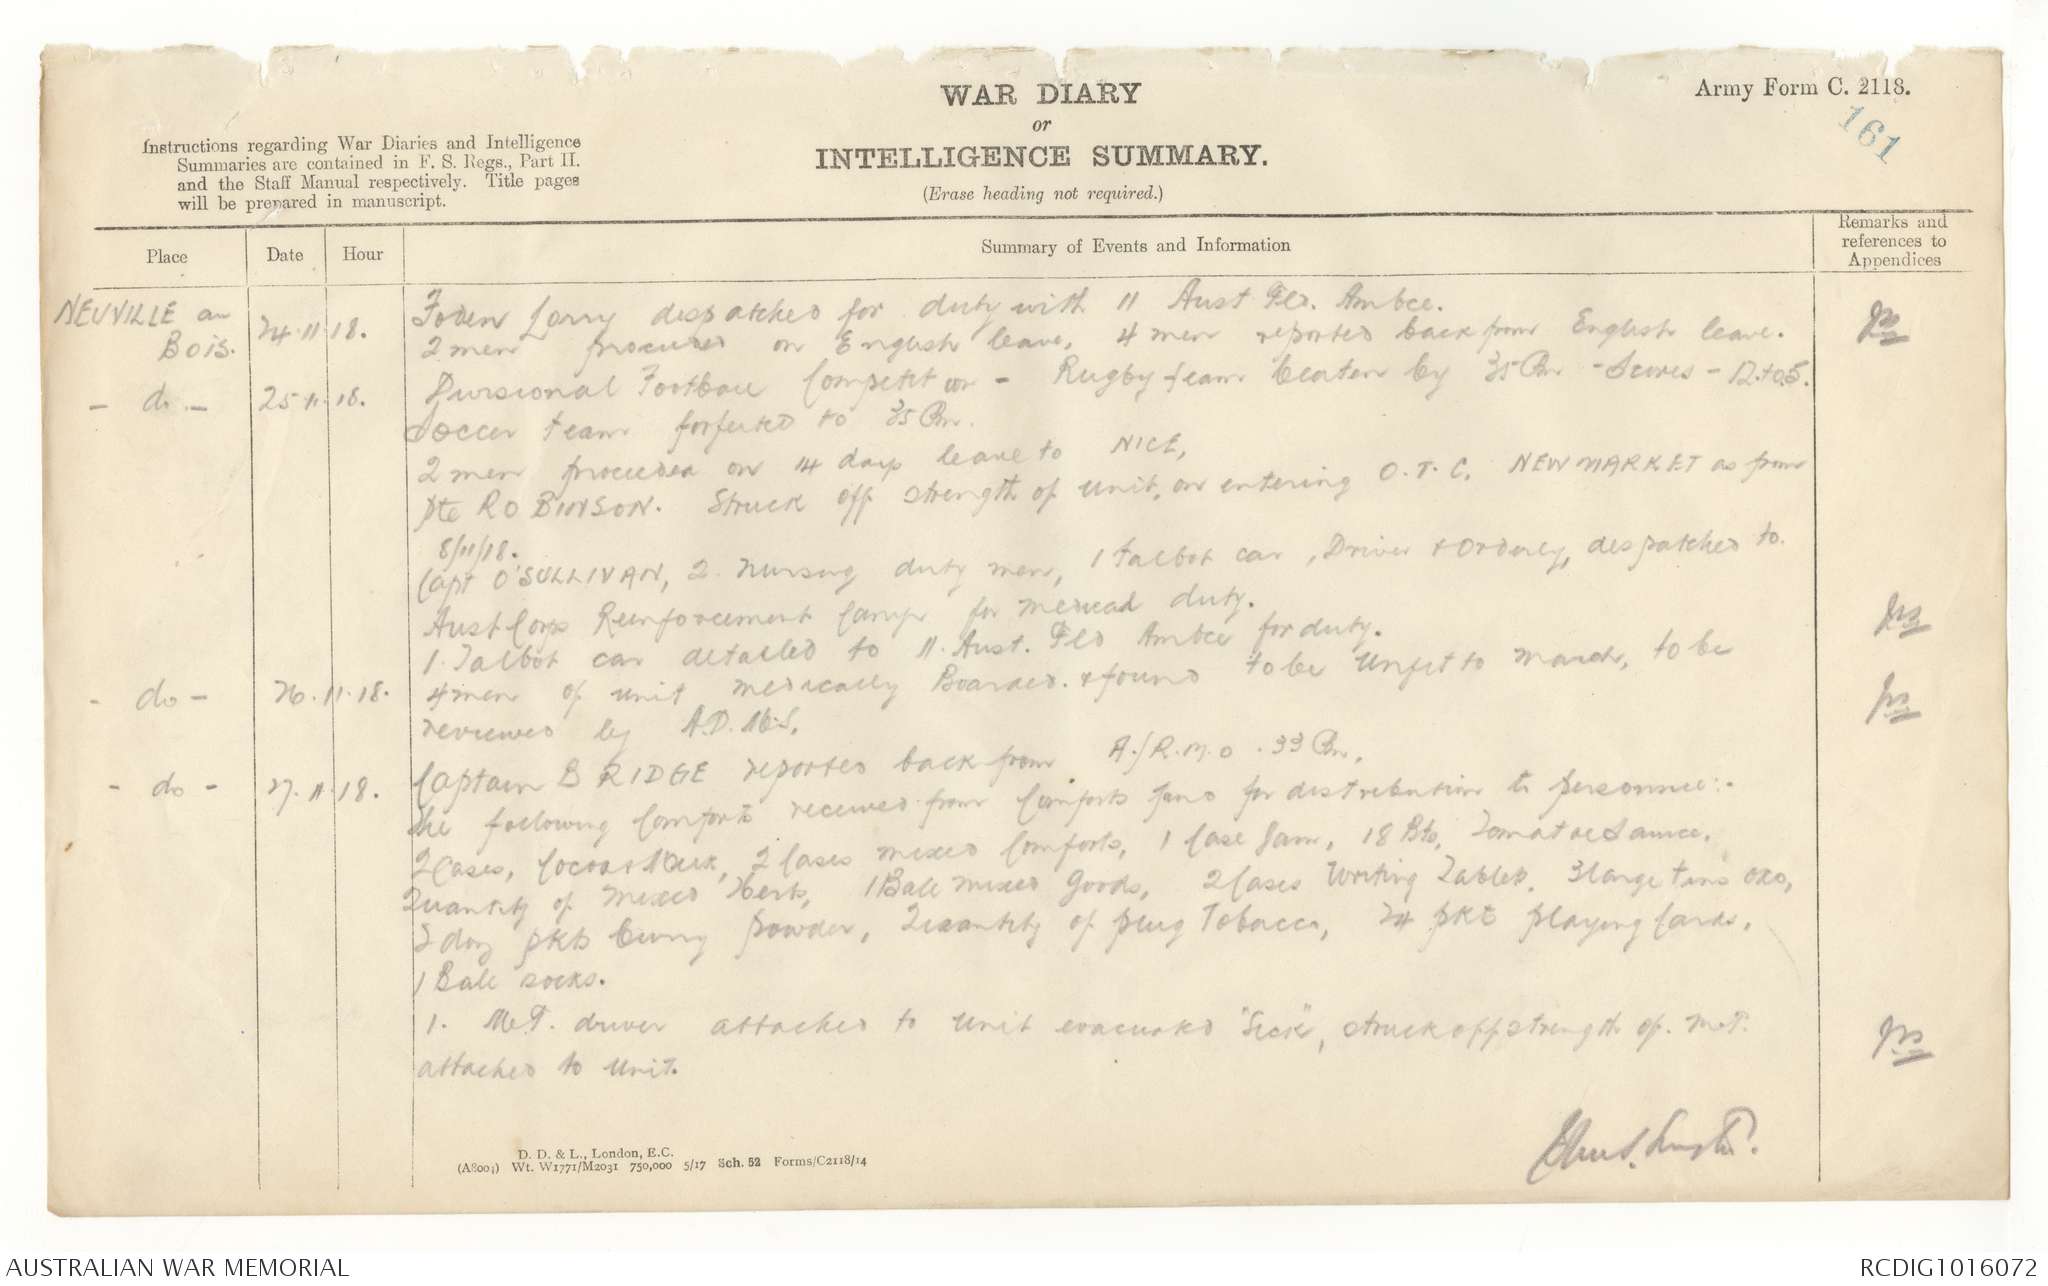 WAR DIARY
or
INTELLIGENCE SUMMARY.
(Erase heading not required.)
Army Form C. 2118.
161
Instructions regarding War Diaries and Intelligence
Summaries are contained in F. S. Regs., Part II.
and the Staff Manual respectively. Title pages
will be prepared in manuscript.
Place Date Hour Summary of Events and Information Remarks and references to Appendices
NEUVILLE au Bois. 24.11.18. Foden Lorry despatched for duty with 11 Aust Fld. Ambce.
2 men proceeded on English leave, 4 men reported back from English leave.
- do - 25.11.18. Divisional Football Competition - Rugby team beaten by 35 Bn - Scores - 12 to 5.
Soccer team forfeited to 35 Bn.
2 men proceeded on 14 days leave to NICE,
Pte ROBINSON. Struck off strength of unit, on entering O.T.C. NEWMARKET as from
8/11/18.
Capt O'SULLIVAN, 2 nursing duty men, 1 Talbot car, Driver & Orderly, despatched to
Aust Corps Reinforcement Camp for medical duty.
1. Talbot car detailed to 11. Aust. Fld Ambce for duty.
- do - 26.11.18. 4 men of unit medically Boarded. & found to be Unfit to march, to be
reviewed by A.D.M.S.
- do - 27.11.18. Captain BRIDGE reported back from A/R.M.O. 33 Bn.
The following Comforts received from Comforts fund for distribution to personnel:-
2 Cases, Cocoa & Milk, 2 Cases mixed Comforts, 1 Case Jam, 18 Bts, Tomatoe Sauce.
Quantity of mixed Herbs, 1 Bale mixed Goods, 2 Cases Writing Tablets. 3 large tins oxo,
2 doz pkts Curry Powder, Quantity of plug Tobacco, 24 pkt playing Cards.
1 Bale socks.
1. M.T. driver attached to unit evacuated "Sick", struck off strength of M.T.
attached to unit.
D. D. & L., London, E.C.
(A8004) Wt. W1771/M2031 750,000 5/17 Sch. 52 Forms/C2118/14
AUSTRALIAN WAR MEMORIAL
RCDIG1016072